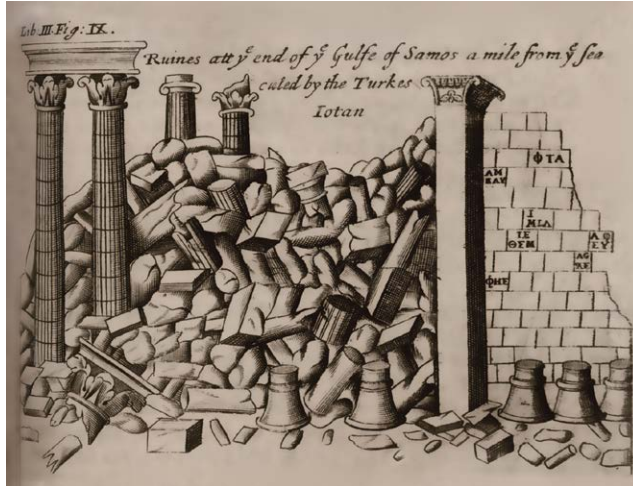 Lib III Fig: IX.
Ruines att yͤ end of yͤ Gulfe of Samos a mile from yͤ sea
caled by the Turkes
Iotan
ΦΤΑ
ΑΜ
ΚΑΥ
Ι
ΜΙΛ
ΙΕ
ΘΕΜ
ΦΗΕ